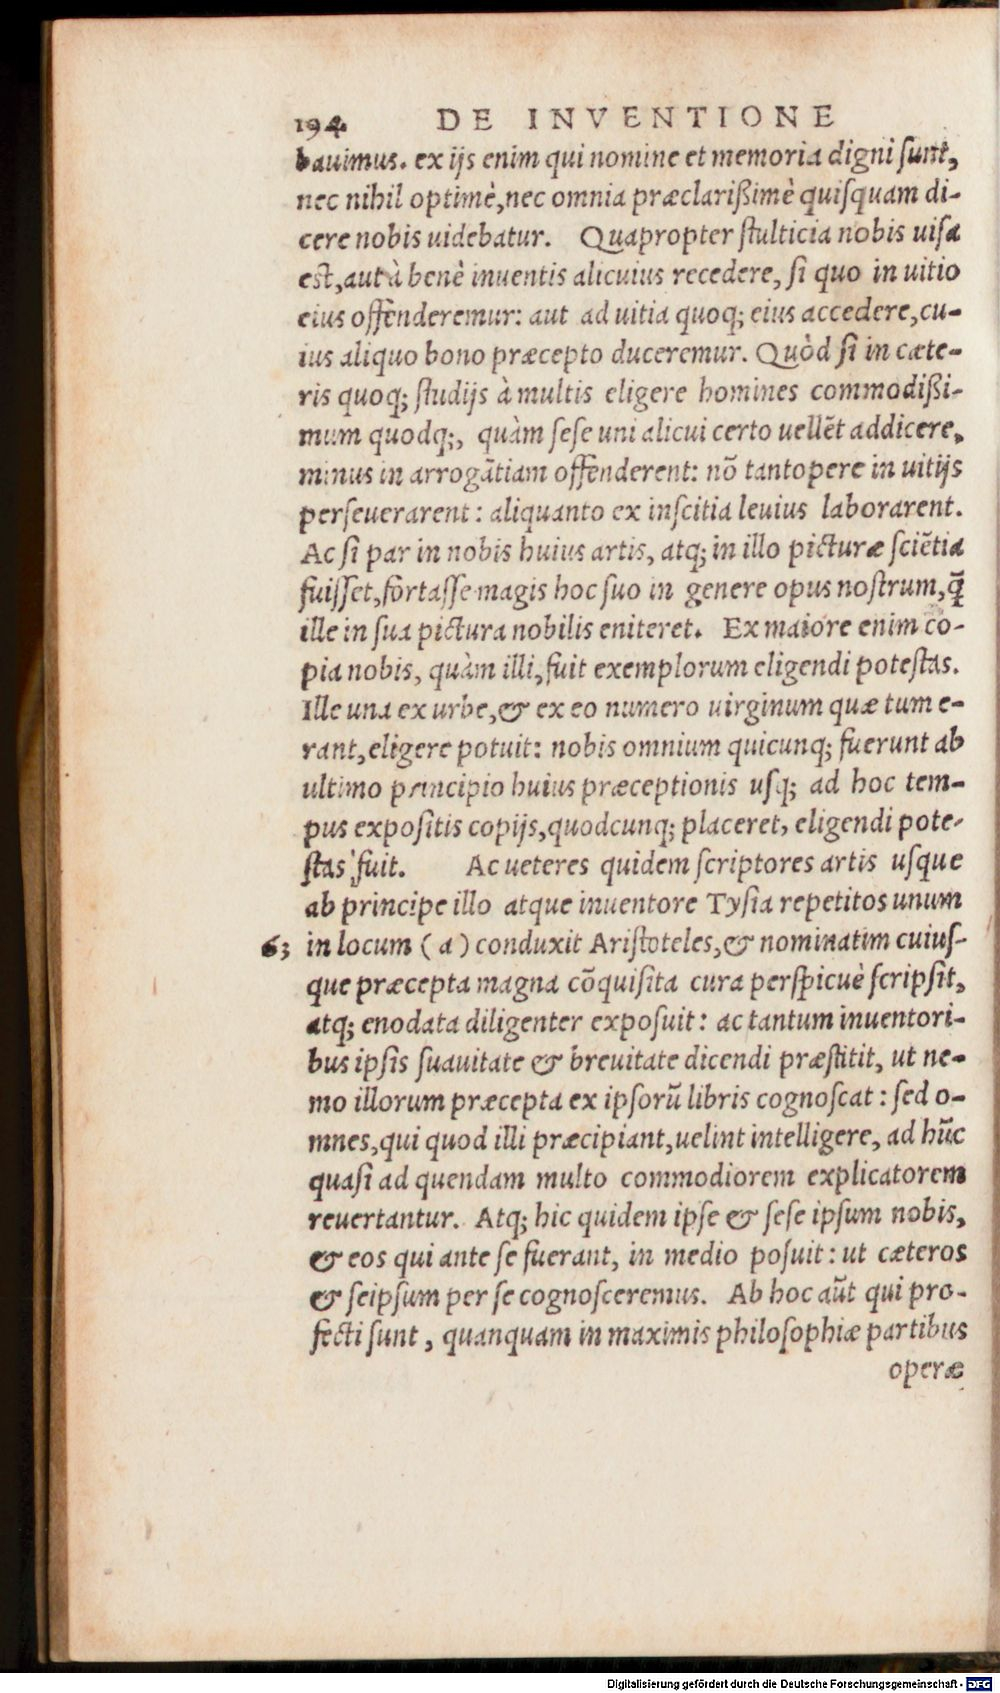 194 DE INVENTIONE
bauimus. ex ijs enim qui nomine et memoria digni ſunt,
nec nihil optimè, nec omnia præclarißimè quiſquam di-
cere nobis uidebatur. Quapropter ſtulticia nobis uiſa
est, aut à benè inuentis alicuius recedere, ſi quo in uitio
eius offenderemur: aut ad uitia quoq; eius accedere, cu-
ius aliquo bono præcepto duceremur. Quòd ſi in cæte-
ris quoq; ſtudijs à multis eligere homines commodißi-
mum quodq;, quàm ſeſe uni alicui certo uellẽt addicere,
minus in arrogãtiam offenderent: nõ tantopere in uitijs
perſeuerarent: aliquanto ex inſcitia leuius laborarent.
Ac ſi par in nobis huius artis, atq; in illo picturæ ſciẽtia
fuiſſet, fortaſſe magis hoc ſuo in genere opus noſtrum, q̃
ille in ſua pictura nobilis eniteret. Ex maiore enim co-
pia nobis, quàm illi, fuit exemplorum eligendi poteſtas.
Ille una ex urbe, & ex eo numero uirginum quæ tum e-
rant, eligere potuit: nobis omnium quicunq; fuerunt ab
ultimo principio huius præceptionis uſq; ad hoc tem-
pus expoſitis copijs, quodcunq; placeret, eligendi pote-
ſtas fuit. Ac ueteres quidem ſcriptores artis uſque
ab principe illo atque inuentore Tyſia repetitos unum
63 in locum (a) conduxit Ariſtoteles, & nominatim cuiuſ-
que præcepta magna cõquiſita cura perſpicuè ſcripſit,
atq; enodata diligenter expoſuit: ac tantum inuentori-
bus ipſis ſuauitate & breuitate dicendi præſtitit, ut ne-
mo illorum præcepta ex ipſorũ libris cognoſcat: ſed o-
mnes, qui quod illi præcipiant, uelint intelligere, ad hũc
quaſi ad quendam multo commodiorem explicatorem
reuertantur. Atq; hic quidem ipſe & ſeſe ipſum nobis,
& eos qui ante ſe fuerant, in medio poſuit: ut cæteros
& ſeipſum per ſe cognoſceremus. Ab hoc aũt qui pro-
fecti ſunt, quanquam in maximis philoſophiæ partibus
operæ
Digitalisierung gefördert durch die Deutsche Forschungsgemeinschaft - DFG